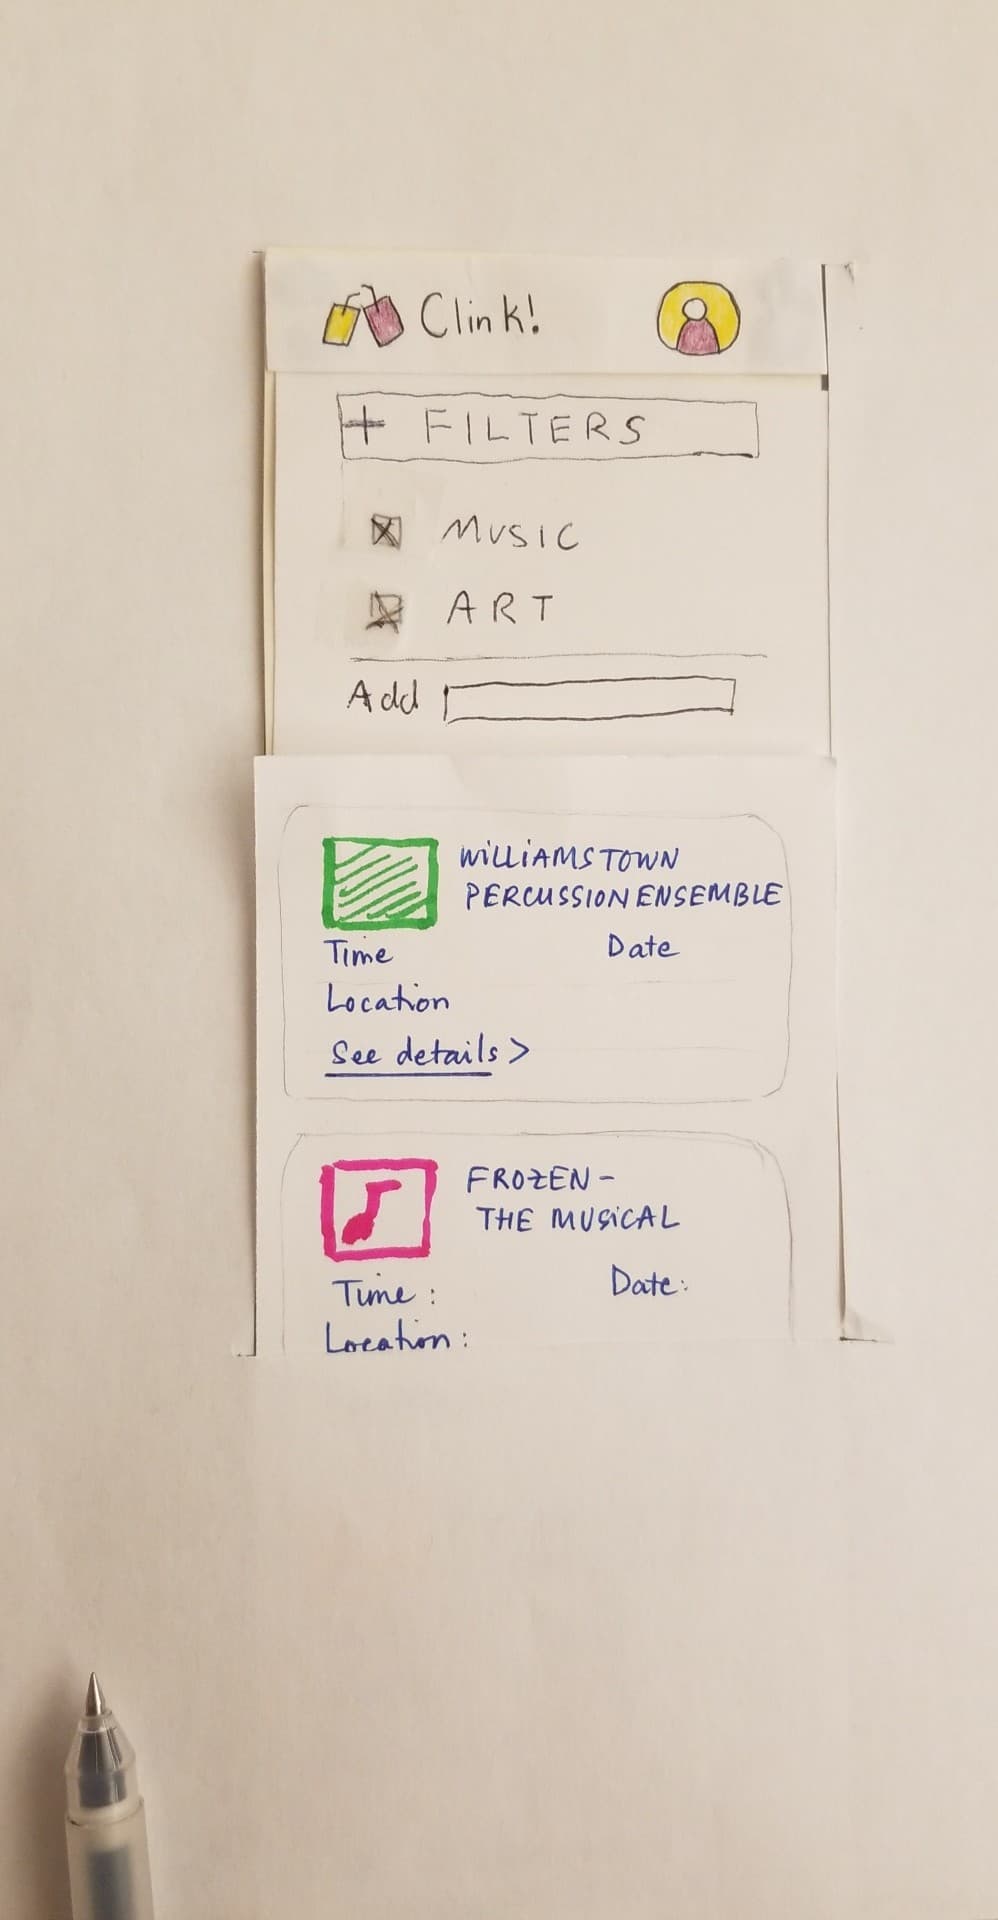 Clink!
+ FILTERS
MUSIC
ART
Add
WILLIAMSTOWN
PERCUSSION ENSEMBLE
Time Date
Location
See details >
FROZEN -
THE MUSICAL
Time : Date:
Location :